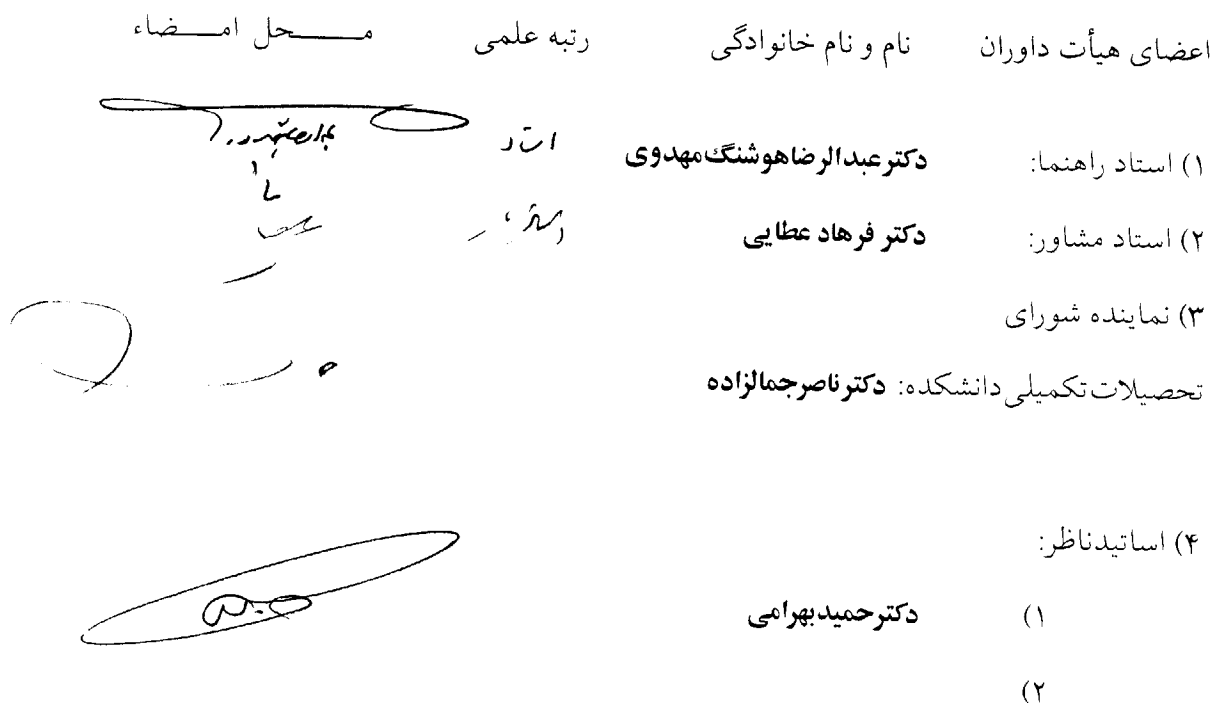 اعضای هیأت داوران نام و نام خانوادگی رتبه علمی مـــحل امـــضاء
۱) استاد راهنما: دکتر عبدالرضا هوشنگ مهدوی استاد
۲) استاد مشاور: دکتر فرهاد عطایی استادیار
۳) نماینده شورای
تحصیلات تکمیلی دانشکده: دکتر ناصر جمالزاده
۴) اساتید ناظر:
۱) دکتر حمید بهرامی
۲)